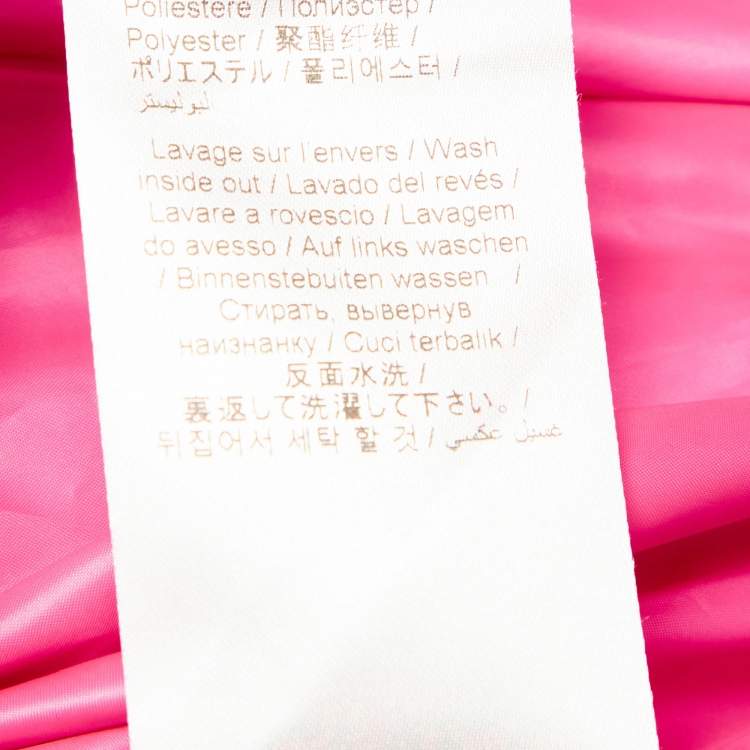 Poliestere / Полиэстер /
Polyester / 聚酯纤维 /
ポリエステル / 폴리에스터 /
ليوليستر
Lavage sur l'envers / Wash
inside out / Lavado del revés /
Lavare a rovescio / Lavagem
do avesso / Auf links waschen
/ Binnenstebuiten wassen /
Стирать, вывернув
наизнанку / Cuci terbalik /
反面水洗 /
裏返して洗濯して下さい。 /
뒤집어서 세탁 할 것 / غسيل عكسي